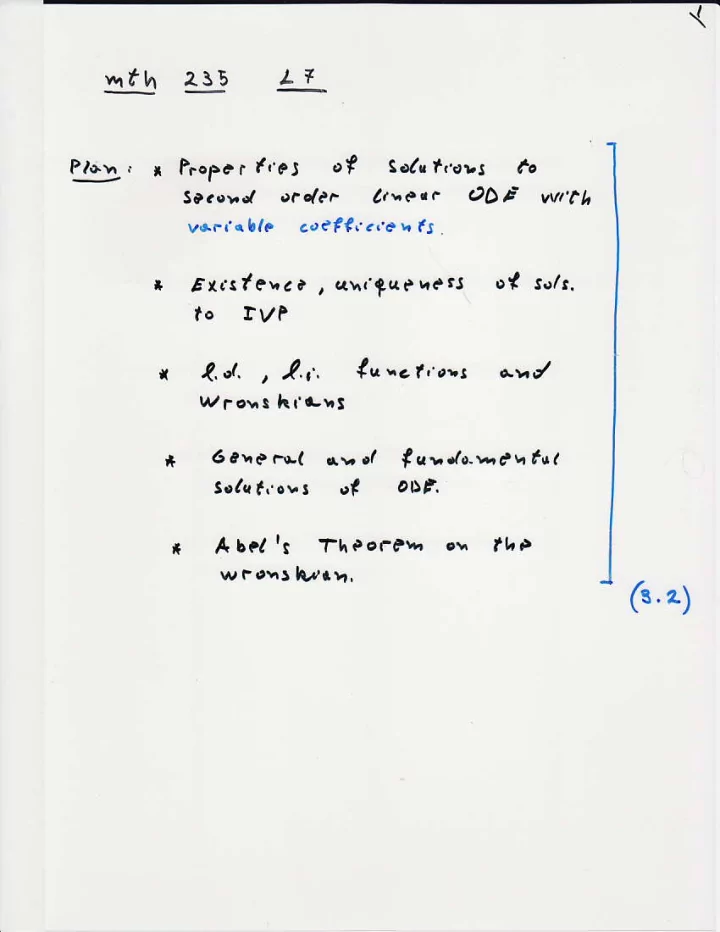 mth 235 L7
Plan: * Properties of Solutions to
second order linear ODE with
variable coefficients.
* Existence, uniqueness of sols.
to IVP
* l.d., l.i. functions and
Wronskians
* General and fundamental
Solutions of ODE.
* Abel's Theorem on the
wronskian.
(3.2)